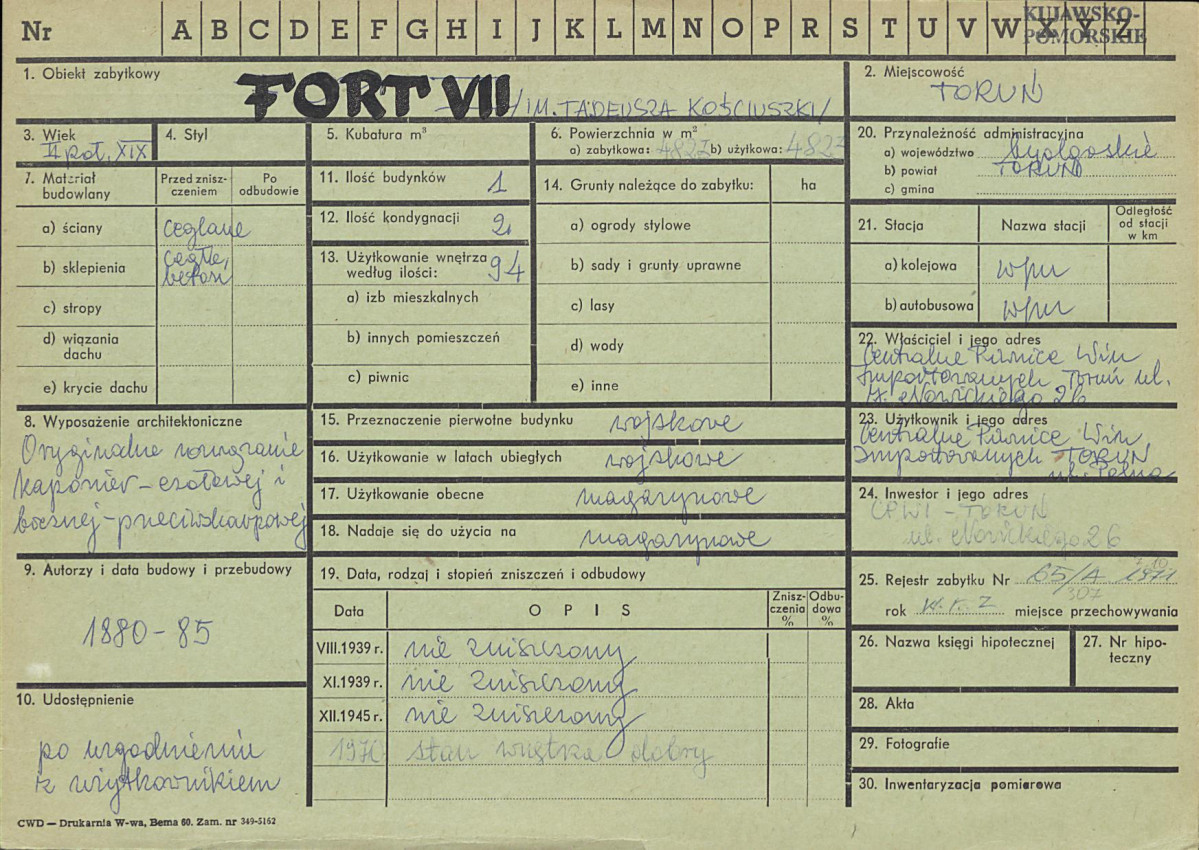 Nr A B C D E F G H I J K L M N O P R S T U V W X Y Z
KUJAWSKO-
POMORSKIE
1. Obiekt zabytkowy
FORT VII /IM. TADEUSZA KOŚCIUSZKI/
2. Miejscowość
TORUŃ
3. Wiek
II poł. XIX
4. Styl
5. Kubatura m³
6. Powierzchnia w m²
a) zabytkowa: 4827 b) użytkowa: 4827
20. Przynależność administracyjna
a) województwo bydgoskie
b) powiat TORUŃ
c) gmina
7. Materiał
budowlany
Przed znisz-
czeniem
Po
odbudowie
a) ściany ceglane
b) sklepienia cegła,
beton
c) stropy
d) wiązania
dachu
e) krycie dachu
11. Ilość budynków 1
12. Ilość kondygnacji 2
13. Użytkowanie wnętrza
według ilości: 94
a) izb mieszkalnych
b) innych pomieszczeń
c) piwnic
14. Grunty należące do zabytku: ha
a) ogrody stylowe
b) sady i grunty uprawne
c) lasy
d) wody
e) inne
21. Stacja Nazwa stacji
Odległość
od stacji
w km
a) kolejowa
b) autobusowa
22. Właściciel i jego adres
Centralne Piwnice Win
Importowanych Toruń ul.
Nowickiego 26
8. Wyposażenie architektoniczne
Oryginalne rozwiązanie
kaponier – czołowej i
bocznej – przeciwskarpowej
15. Przeznaczenie pierwotne budynku wojskowe
16. Użytkowanie w latach ubiegłych wojskowe
17. Użytkowanie obecne magazynowe
18. Nadaje się do użycia na magazynowe
23. Użytkownik i jego adres
Centralne Piwnice Win
Importowanych – TORUŃ
ul. Polna
24. Inwestor i jego adres
CPWI – TORUŃ
ul. Nowickiego 26
9. Autorzy i data budowy i przebudowy
1880 – 85
19. Data, rodzaj i stopień zniszczeń i odbudowy
Data O P I S
Znisz-
czenia
%
Odbu-
dowa
%
VIII.1939 r. nie zniszczony
XI.1939 r. nie zniszczony
XII.1945 r. nie zniszczony
1970 stan wnętrza dobry
25. Rejestr zabytku Nr 65/A 1971
307
rok W.K.Z miejsce przechowywania
26. Nazwa księgi hipotecznej
27. Nr hipo-
teczny
28. Akta
29. Fotografie
30. Inwentaryzacja pomiarowa
10. Udostępnienie
po uzgodnieniu
z użytkownikiem
CWD — Drukarnia W-wa, Bema 60. Zam. nr 349-5162